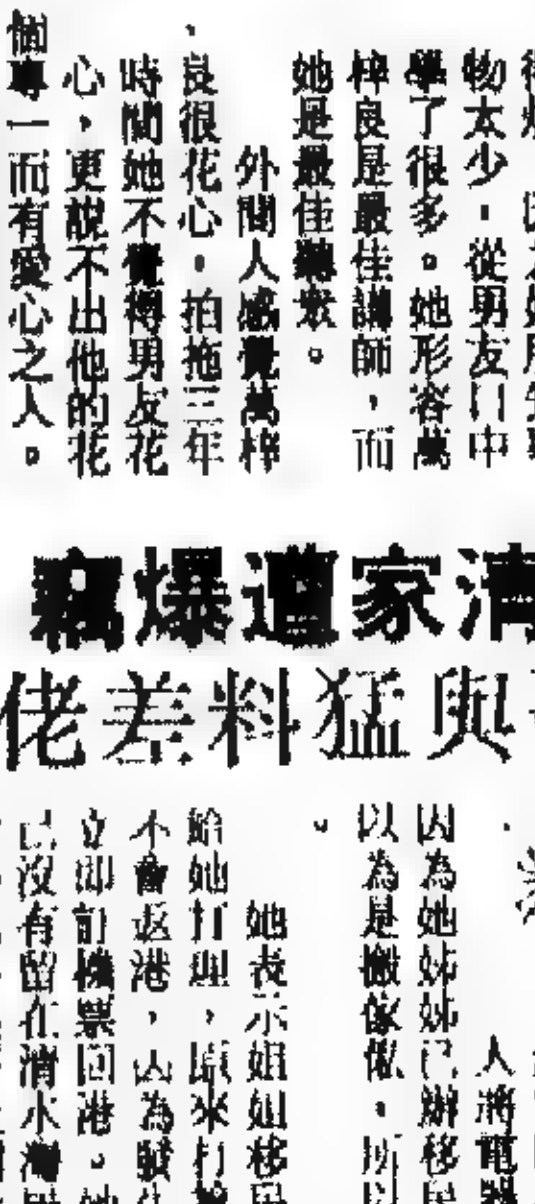 物太少，從男友口中
學了很多。她形容萬
梓良是最佳講師，而
她是最佳聽衆。
外間人感覺萬梓
良很花心。拍拖三年
時間她不覺得男友花
心，更說不出他的花
個專一而有愛心之人。
清家遭爆竊
與猛料差佬
人將電
因為她姊姊已辦移
以為是搬傢俬，所以
。
她表示姐姐移民
給她打理，原來打
不會返港，因為發生
立即訂機票回港。她
已沒有留在清水灣